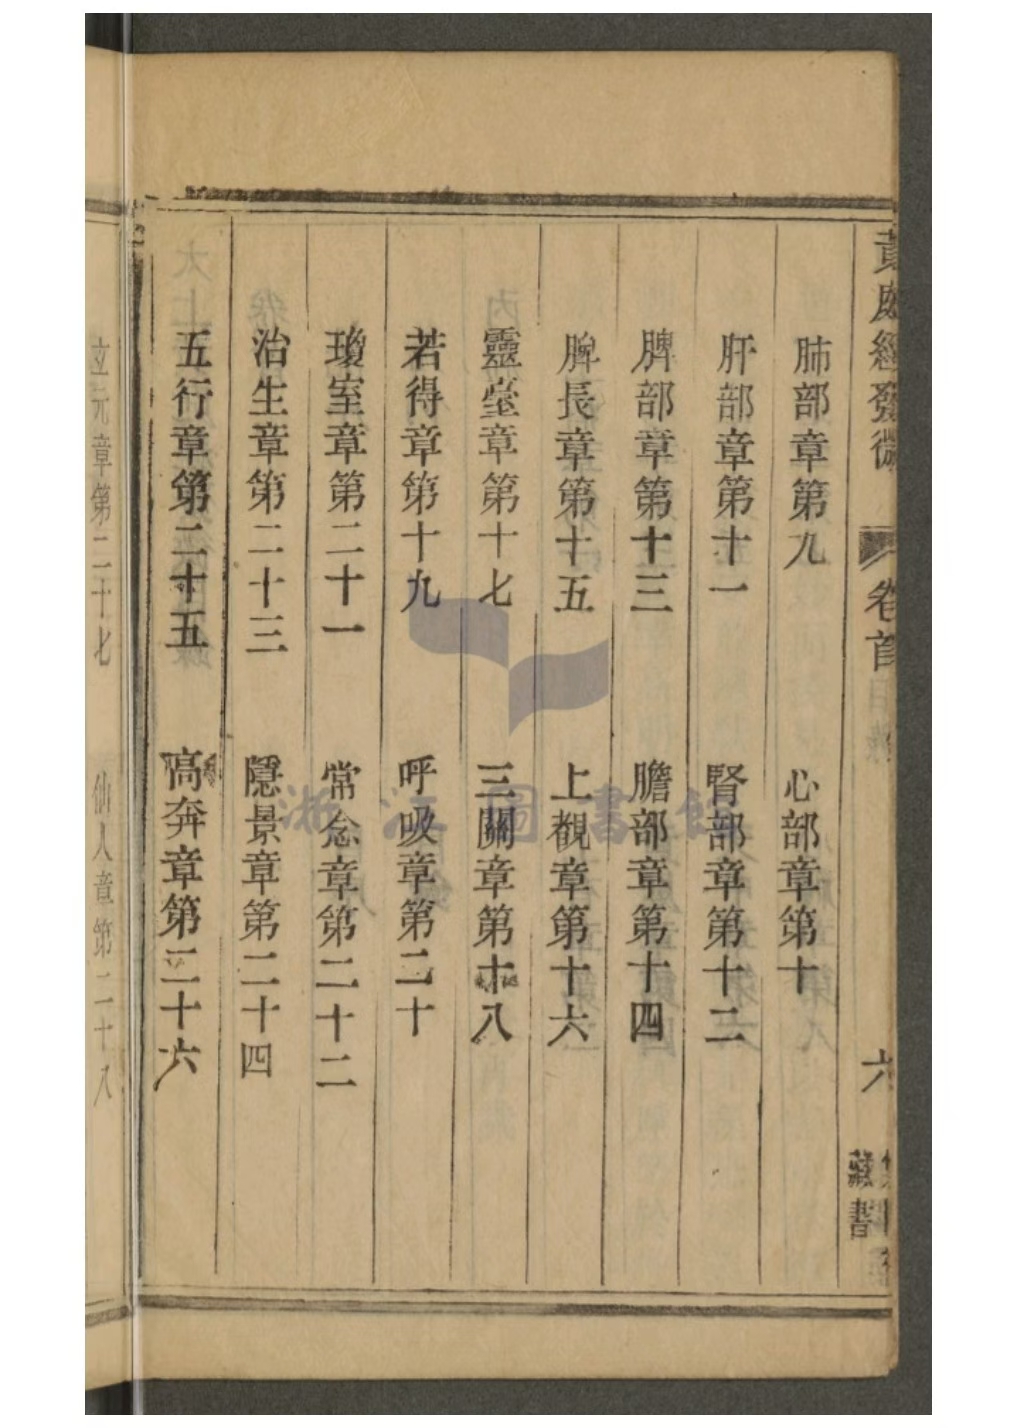 黃庭經發微
卷首
六
藏書
肺部章第九
心部章第十
肝部章第十一
腎部章第十二
脾部章第十三
膽部章第十四
脾長章第十五
上觀章第十六
靈臺章第十七
三關章第十八
若得章第十九
呼吸章第二十
瓊室章第二十一
常念章第二十二
治生章第二十三
隱景章第二十四
五行章第二十五
高奔章第二十六
立元章第二十七
仙人章第二十八
浙江圖書館